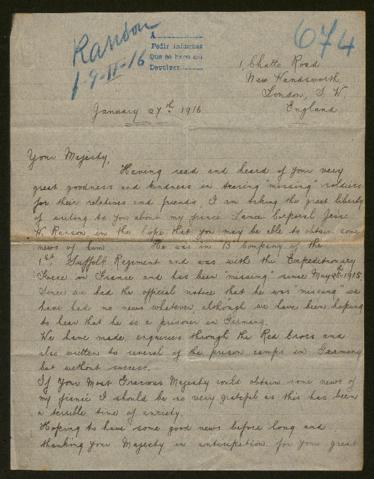 Ranson
1-9-II-16
A
Pedir informes
Que se hace en
Devolver
674
1, Chatto Road
New Wandsworth
London, S. W.
England.
January 27th 1916
Your Majesty,
Having read and heard of your very
great goodness and kindness in tracing "missing" soldiers
for their relatives and friends, I am taking the great liberty
of writing to you about my fiancé Lance Corporal Jesse
W Ranson in the hope that you may be able to obtain some
news of him. He was in "B" Company of the
1st Suffolk Regiment and was with the Expeditionary
Force in France and has been "missing" since May 8th 1915.
Since we had the official notice that he was "missing" we
have had no news whatever although we have been hoping
to hear that he is a prisoner in Germany.
We have made enquiries through the Red Cross and
also written to several of the prison camps in Germany
but without success.
If Your Most Gracious Majesty could obtain some news of
my fiancé I should be so very grateful as this has been
a terrible time of anxiety.
Hoping to have some good news before long and
thanking Your Majesty in anticipation for your great